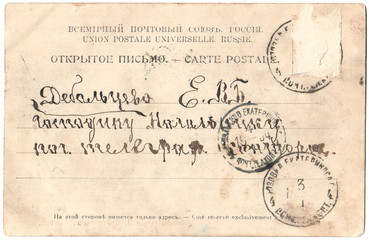 ВСЕМІРНЫЙ ПОЧТОВЫЙ СОЮЗЪ. РОССІЯ.
UNION POSTALE UNIVERSELLE. RUSSIE.
ОТКРЫТОЕ ПИСЬМО. — CARTE POSTALE.
Дебальцево Е.В.
Господину Начальнику
телеграф. Конторы
3
На этой сторонѣ пишется только адресъ. — Coté réservé exclusivement